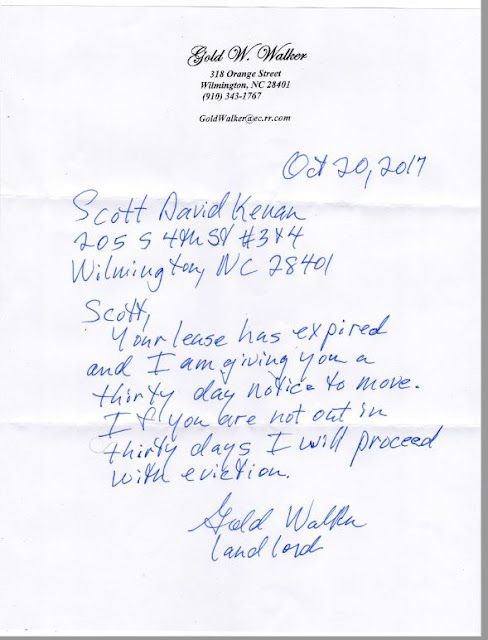 Gold W. Walker
318 Orange Street
Wilmington, NC 28401
(910) 343-1767
GoldWalker@ec.rr.com
Oct 20, 2017
Scott David Kenan
205 S 4th St #3&4
Wilmington, NC 28401
Scott,
Your lease has expired
and I am giving you a
thirty day notice to move.
If you are not out in
thirty days I will proceed
with eviction.
Gold Walker
landlord